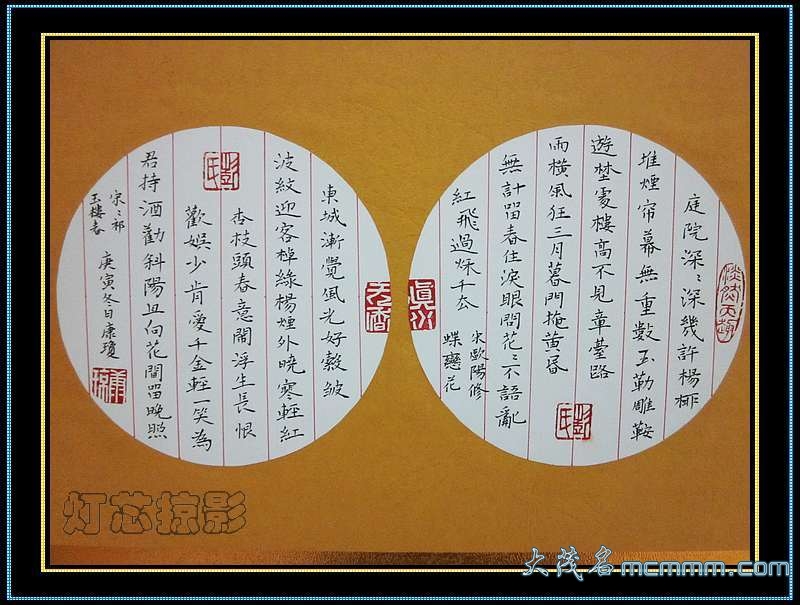 庭院深〻深幾許楊桺
堆煙帘幕無重數玉勒雕鞍
遊埜處樓高不見章臺路
雨橫風狂三月暮門掩黃昏
無計畱春住淚眼問花〻不語亂
紅飛過秌千去
宋歐陽修
蝶戀花
東城漸覺風光好縠皺
波紋迎客棹綠楊煙外曉寒輕紅
杏枝頭春意鬧浮生長恨
歡娛少肯愛千金輕一笑為
君持酒勸斜陽且向花間畱晚照
宋〻祁
玉樓春
庚寅冬日康瓊
灯芯掠影
大茂名mcmmm.com